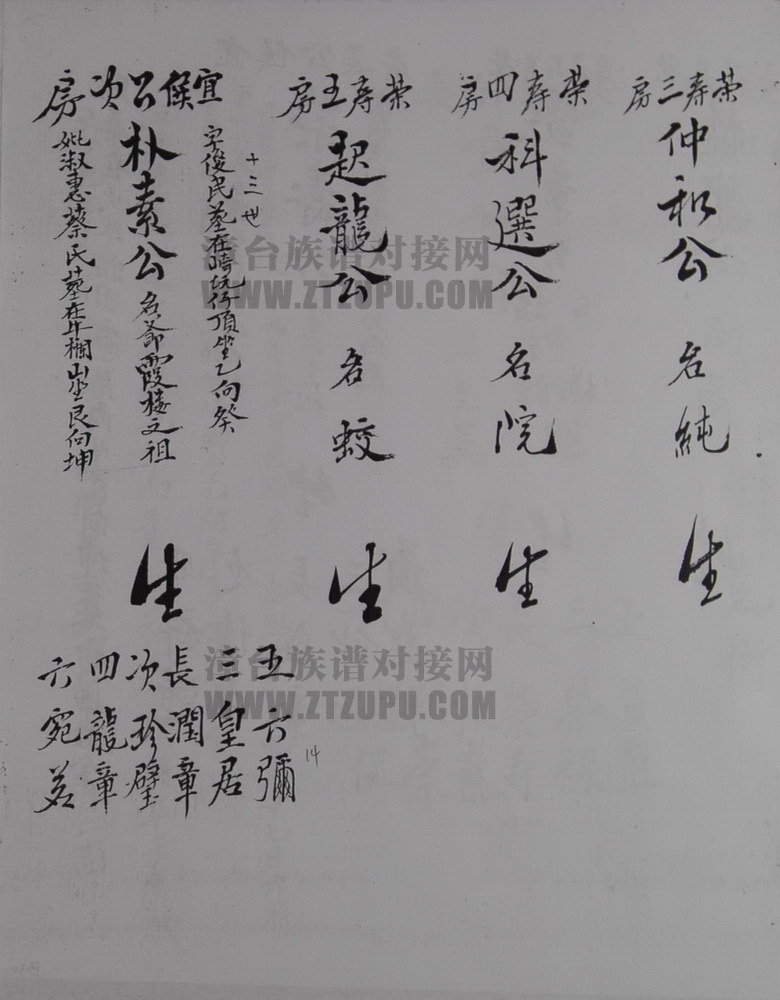 榮壽三房
仲和公 名純 生
榮壽四房
科選公 名院 生
榮壽五房
起龍公 名蛟 生
十三世
宜候公次房
字俊民墓在暗坑仔頂坐乙向癸
朴素公 名爺霞樓之祖 生
妣淑惠蔡氏墓在牛欄山坐艮向坤
五六彌
三皇居
長潤章
次珍璧
四龍章
六宛若
14
漳台族谱对接网
WWW.ZTZUPU.COM
漳台族谱对接网
WWW.ZTZUPU.COM